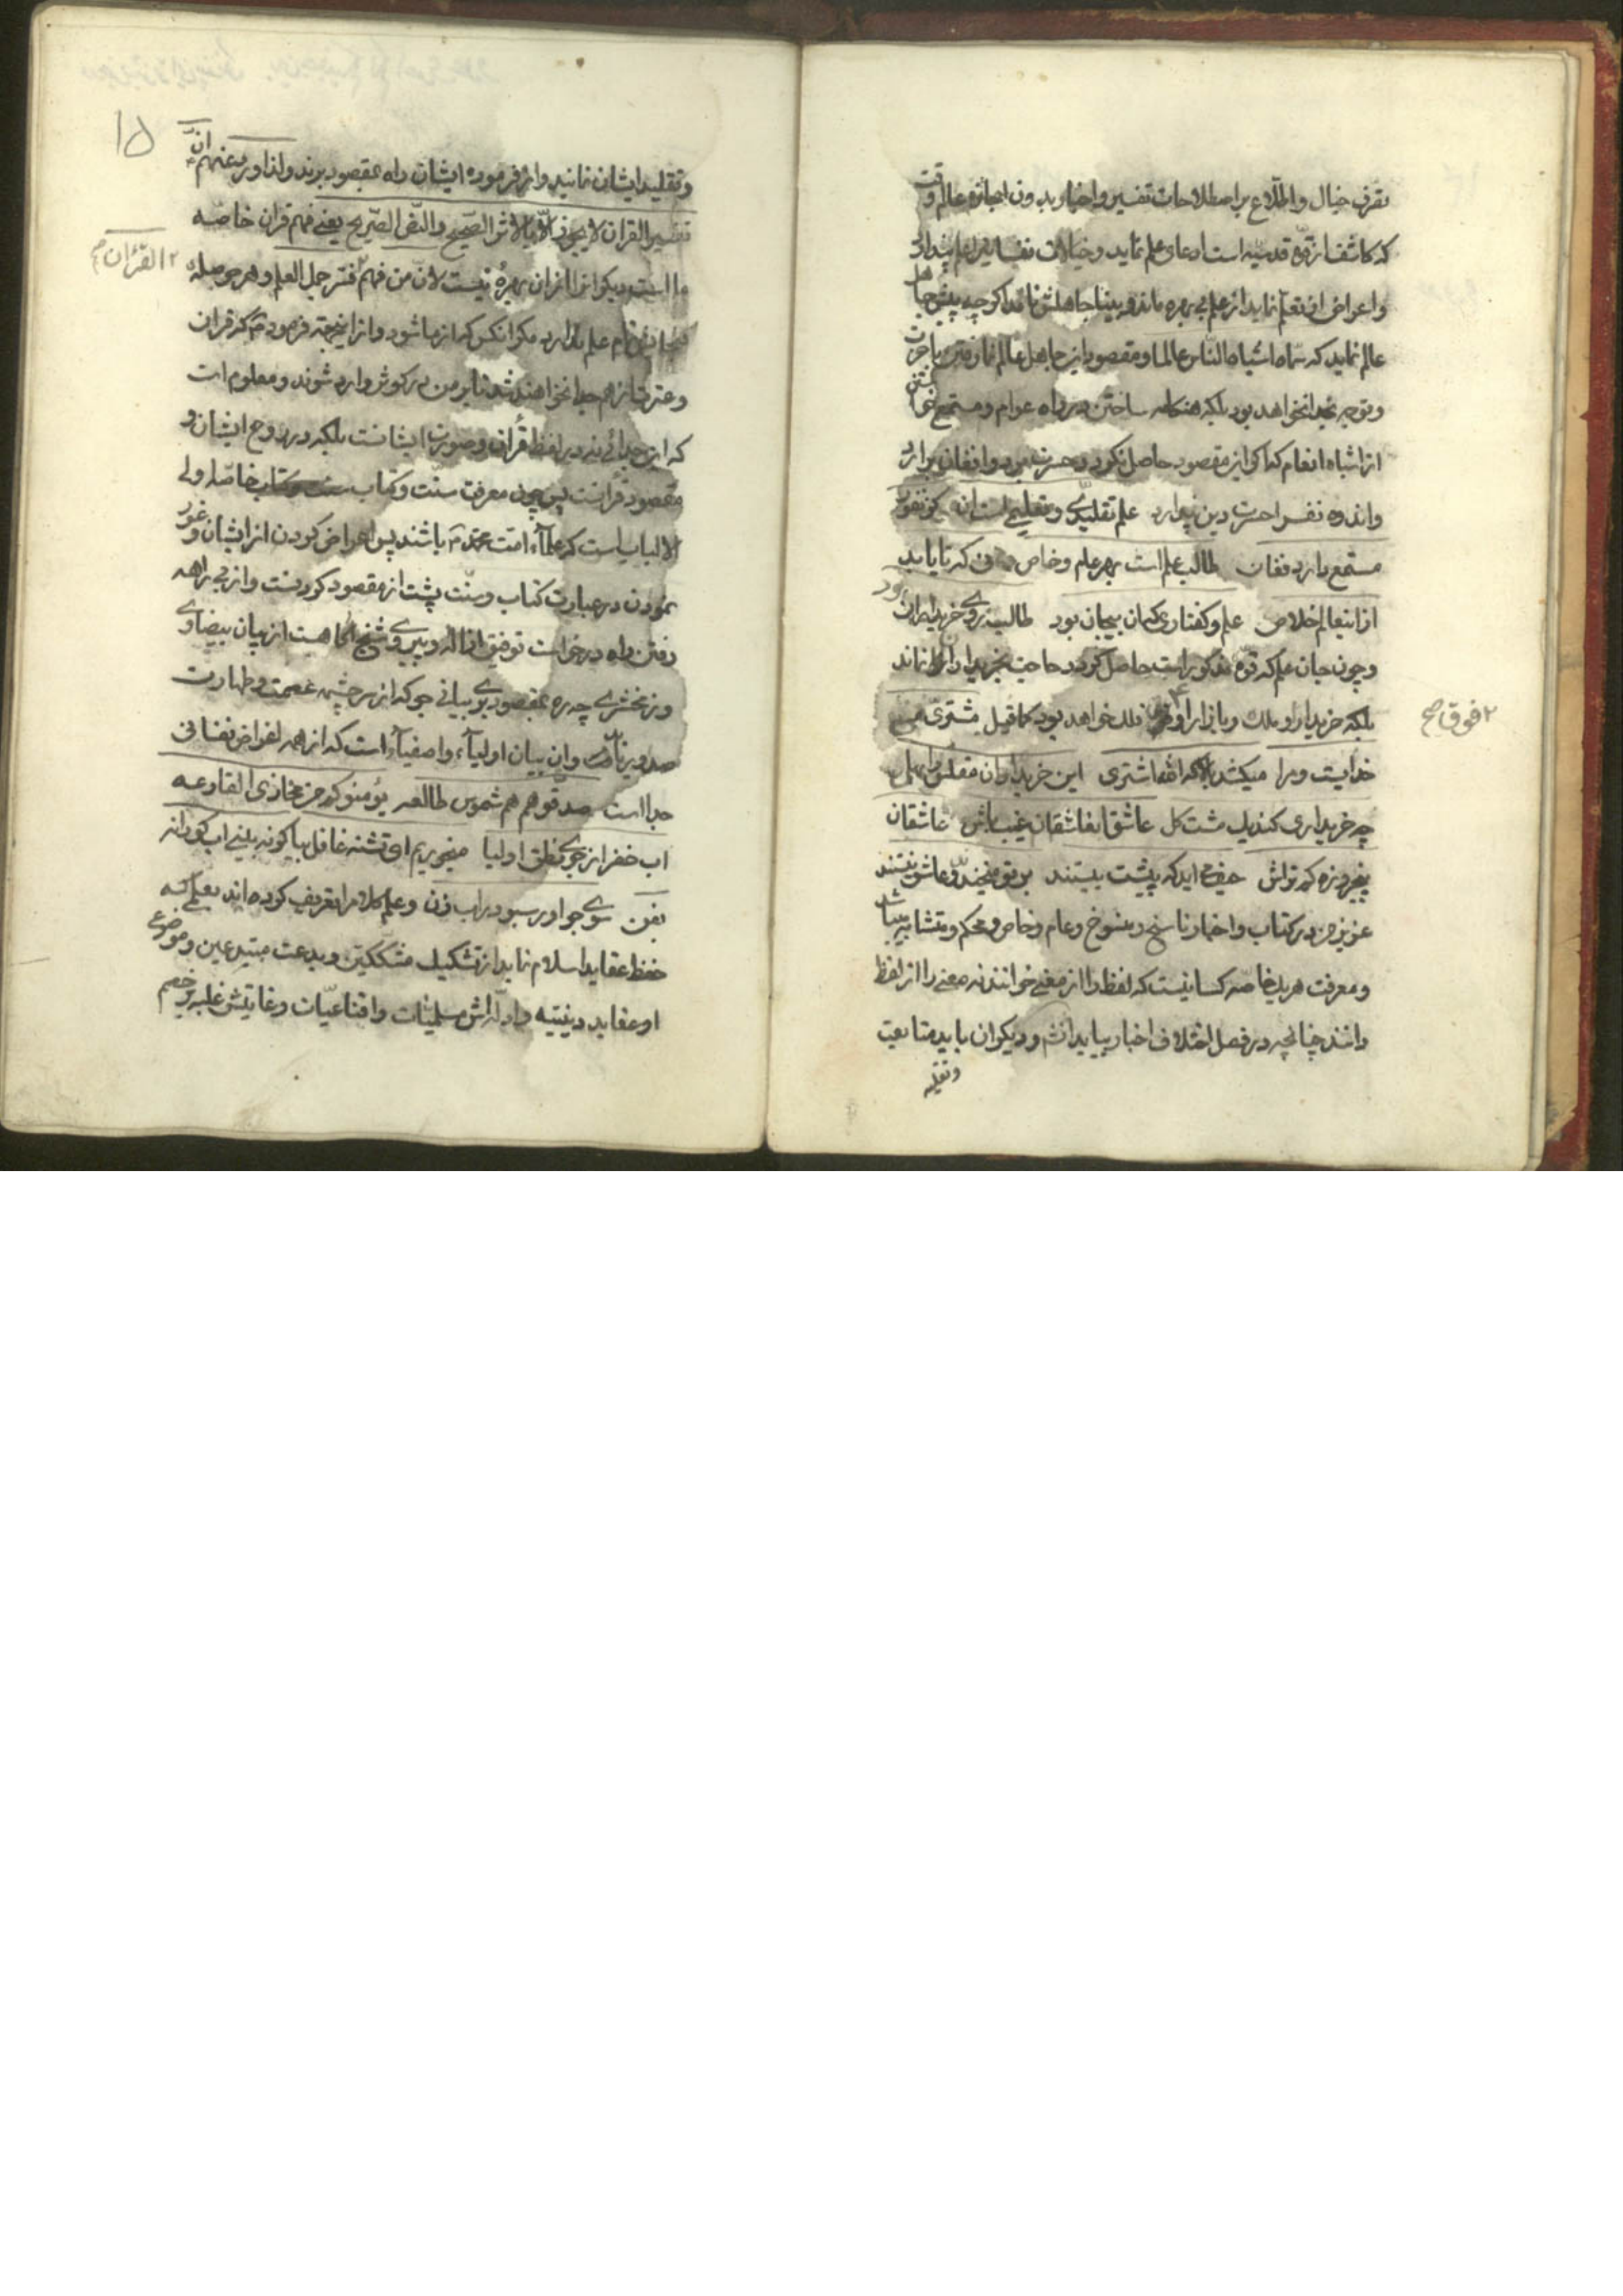 تصرف خیال و اطلاع بر اصطلاحات تفسیر و اخبار بدون اجازه عالم وقت
که کاشف از قوه قدسیه است ادعای علم نماید و خیالات نفسانیرا علم پندارد
و اعراض از تعلم نماید از علم بی بهره ماند و بینا جاهلش نامد اکرچه پیش جهال
عالم نماید که سماه اشباه الناس عالما و مقصود این جاهل عالم نما رفتن باخرت
و توجه بخدا نخواهد بود بلکه هنکامه ساختن در راه عوام و مستمع
از اشباه انعام که اکر این مقصود حاصل نکردد حسرت و افغان برارد
و اندوه نفس احسرت دین پندارد علم تقلیدی و تعلیمی است ان کز نفور
مستمع دارد فغان طالب علم است بهر علم و خاص نی که تا یابد
ازاینعالم خلاص علم و کفتاری کان بیجان بود طالب روی خریداران بود
و چون جان علم که قوه مذکور است حاصل کردد حاجت بخریداران نماند
بلکه خریدار او ملک و بازار او فلک خواهد بود کما قیل مشتری من
خدایست و مرا میکشد بالا که الله اشتری این خریداران مفلس را بهل
چه خریداری کند یک مشت کل عاشقا بنعاشقان غیب باش عاشقان
پنجروزه کم تراش حیفم اید که پیشت بیستند بر تو میخندند و عاشق نیستند
عزیز من در کتاب و اخبار ناسخ و منسوخ و عام و خاص و محکم و متشابه میباشد
و معرفت هر یک خاصه کسانیست که لفظ را از معنی خوانند نه معنی را از لفظ
دانند چنانچه در فصل اختلاف اخبار بیاید انشا و دیکران باید متابعت
و تقلید
۲ فوق صح
۱۵
و تقلید ایشان نمایند و از فرموده ایشان راه بمقصود برند و لذا ورد عنهم ان
تفسیر القران لا یجوز الا بالاثر الصحیح و النص الصریح یعنی فهم قران خاصه
ما است دیکرانرا ازان بهرهٔ نیست لان من فهم فسر جمل العلم و هر حوصله
کنجایش نام علم ندارد مکر انکس که از ما شود و از اینجهة فرمودهم که قران
و عترت از هم جدا نخواهند شد تا بر من در کوثر وارد شوند و معلوم است
که این جدائی نه در لفظ قران و صورت ایشانست بلکه در روح ایشان و
مقصود قرانست پس چون معرفت سنت و کتاب خاصه اولی
الالباب است که علمآء امت محمدم باشند پس اعراض کردن از ایشان و غور
نمودن در عبارت کتاب و سنت پشت از مقصود کردنست و از بی راهه
رفتن راه درخواست توفیق از اله و پیروی شیخ اکاهست از بیان بیضاوی
و زمخشری چه ره بمقصود بوی بیانی جو که از سرچشمه عصمت و طهارت
صدور یافته و ان بیان اولیآء و اصفیآء است که از همه اغراض نفسانی
جدا است صدقوهم هم شموس طالعه یؤمنوکم من مخازی القارعه
اب خضر از جوی نطق اولیا میخوریم ای تشنه غافل بیا کر نه بینی اب کورانه
بفن سوی جو اور سبو در اب زن و علم کلام را تعریف کرده اند بعلمی که
حفظ عقاید اسلام نماید از تشکیک مشککین و بدعت مبتدعین و موضوع
او عقاید دینیه و ادله اش مسلمیات و اقناعیات و غایتش غلبه بر خصم
۲ القرآن م